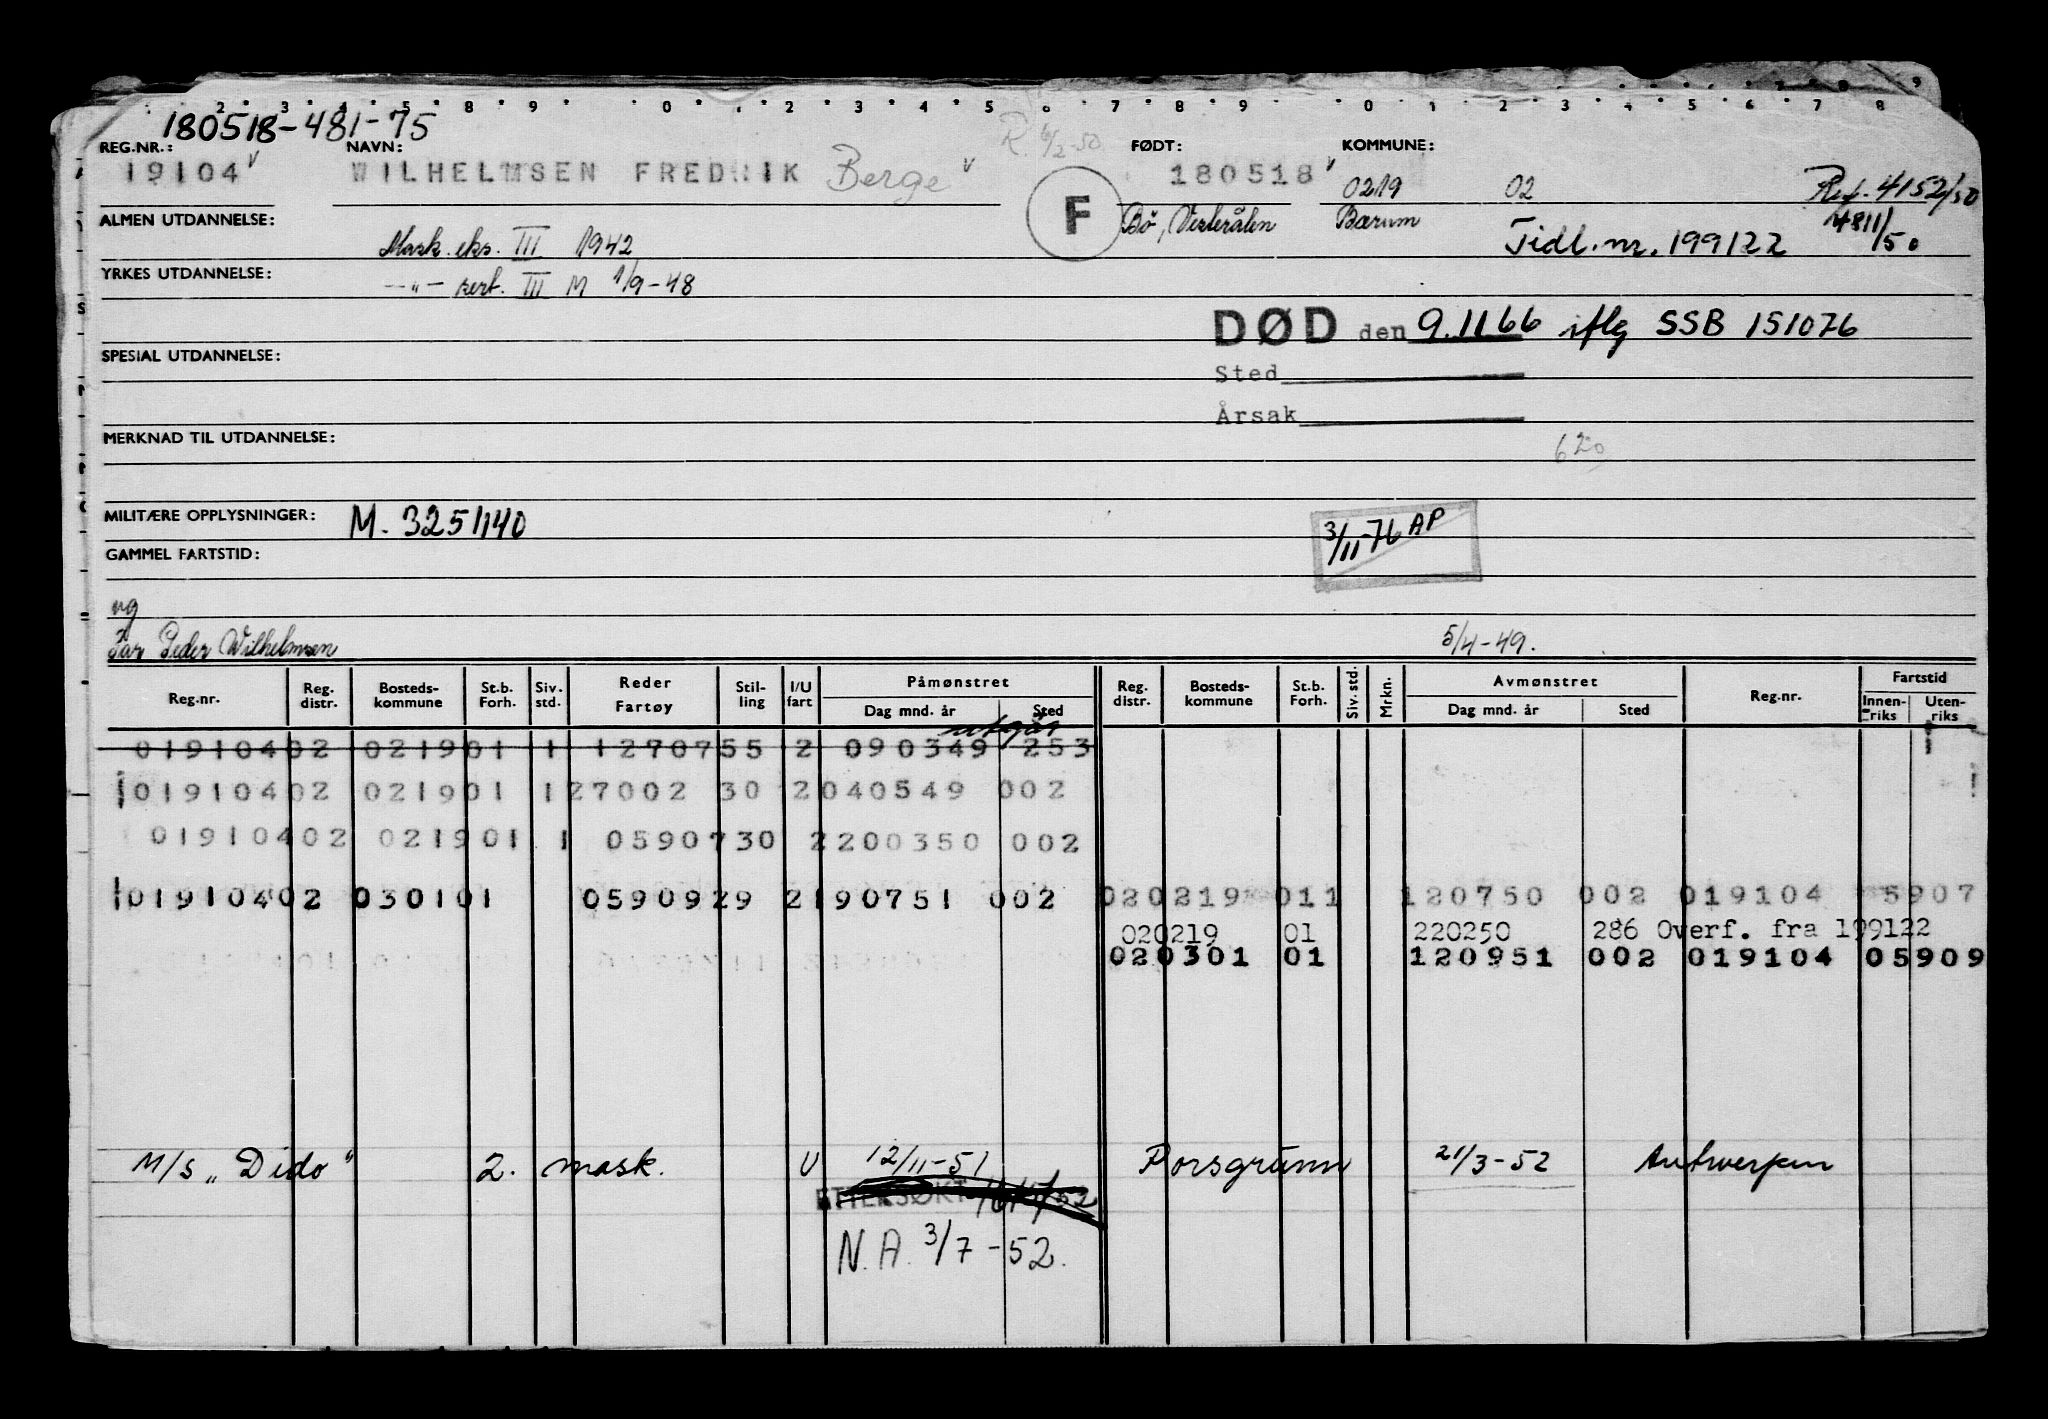 2 3 4 5 8 9 0 1 2 3 4 5 6 7 8 9 0 1 2 3 4 5 6 7 8
180518-481-75
REG.NR.: NAVN: FØDT: KOMMUNE:
19104 WILHELMSEN FREDRIK Berge 180518 0219 02 Ref. 4152/50
R. 6/2-50
F
ALMEN UTDANNELSE: Bø, Vesterålen Bærum 4811/50
Mask. eks. III 1942 Tidl. nr. 199122
YRKES UTDANNELSE:
—"— sert. III M 1/9-48
DØD den 9.11 66 iflg SSB 151076
SPESIAL UTDANNELSE:
Sted
Årsak
MERKNAD TIL UTDANNELSE:
620
MILITÆRE OPPLYSNINGER: M. 3251140
3/11-76 AP
GAMMEL FARTSTID:
ug
Far Peder Wilhelmsen 5/4-49.
Reg.nr. Reg. distr. Bosteds-kommune St.b. Forh. Siv. std. Reder Fartøy Stil-ling I/U fart Påmønstret Dag mnd. år Sted Reg. distr. Bosteds-kommune St.b. Forh. Siv. std. Mrkn. Avmønstret Dag mnd. år Sted Reg.nr. Fartstid Innen-riks Uten-riks
utgår
01910402 021901 1 1270755 2 090349 253
01910402 021901 127002 30 2040549 002
01910402 021901 1 0590730 2200350 002
01910402 030101 0590929 2190751 002 020219 011 120750 002 019104 5907
020219 01 220250 286 Overf. fra 199122
020301 01 120951 002 019104 05909
M/S „Dido" 2. mask. U 12/11-51 Porsgrunn 21/3-52 Antwerpen
ETTERSØKT
N.A. 3/7-52.